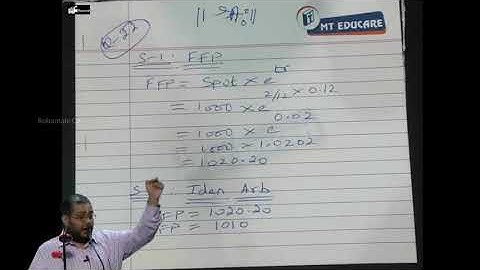 Q-22
MT EDUCARE
S-1: FFP
FFP = Spot × e^rt
= 1000 × e^2/12 × 0.12
= 1000 × e^0.02
= 1000 × 1.0202
= 1020.20
Iden Arb
FFP = 1020.20
AFP = 1010